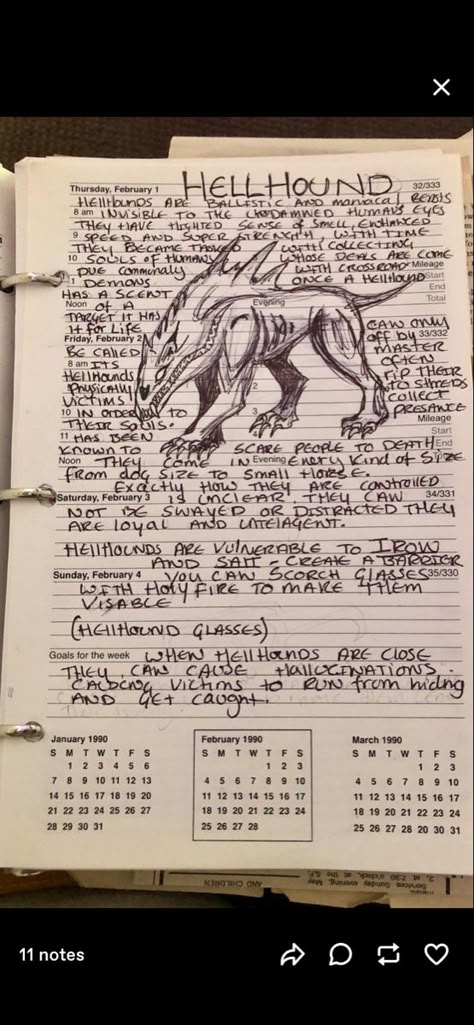 Thursday, February 1
HELLHOUND
32/333
HELLHOUNDS ARE BALLISTIC AND maniacal BEASTS
8 am INVISIBLE TO THE HUMANS EYES
THEY HAVE SENSE OF SMELL, ENHANCED
9 SPEED AND SUPER STRENGTH, WITH TIME
THEY BECAME TASKED WITH COLLECTING
10 SOULS OF HUMANS WHOSE DEALS ARE COME
Mileage
DUE WITH CROSSROAD
Start
DEMONS. ONCE A HELLHOUND
End
HAS A SCENT
Total
Noon OF A
Evening
TARGET IT HAS
It FOR LIFE
CAN ONLY
Friday, February 2
33/332
BE CALLED OFF BY
ITS MASTER
8 am
HELLHOUNDS OFTEN
PHYSICALLY RIP THEIR
VICTIMS TO SHREDS
2
10 IN ORDER TO COLLECT
3
THEIR SOULS. PRESANCE
Mileage
Start
11 HAS BEEN
KNOWN TO SCARE PEOPLE TO DEATH
End
Noon THEY COME IN Evening EVERY KIND OF SIZE
FROM DOG SIZE TO SMALL HORSE.
EXACTLY HOW THEY ARE CONTROLLED
Saturday, February 3 IS UNCLEAR. THEY CAN
34/331
NOT BE SWAYED OR DISTRACTED THEY
ARE LOYAL AND
HELLHOUNDS ARE VULNERABLE TO IRON
AND SALT - CREATE A BARRIER
Sunday, February 4 YOU CAN SCORCH GLASSES
35/330
WITH HOLY FIRE TO MAKE THEM
VISABLE
(HELLHOUND GLASSES)
Goals for the week WHEN HELLHOUNDS ARE CLOSE
THEY CAN CAUSE HALLUCINATIONS.
CAUSING VICTIMS TO RUN from hiding
AND GET caught.
January 1990
S M T W T F S
1 2 3 4 5 6
7 8 9 10 11 12 13
14 15 16 17 18 19 20
21 22 23 24 25 26 27
28 29 30 31
February 1990
S M T W T F S
1 2 3
4 5 6 7 8 9 10
11 12 13 14 15 16 17
18 19 20 21 22 23 24
25 26 27 28
March 1990
S M T W T F S
1 2 3
4 5 6 7 8 9 10
11 12 13 14 15 16 17
18 19 20 21 22 23 24
25 26 27 28 29 30 31
AND CHILDREN
Services Sunday evening, May
2, at 7:30 o'clock
11 notes